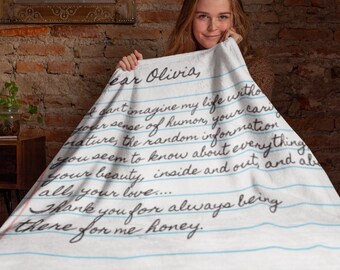 Dear Olivia,
I can't imagine my life without
your sense of humor, your caring
nature, the random information
you seem to know about everything,
your beauty, inside and out, and above
all, your love...
Thank you for always being
there for me honey.